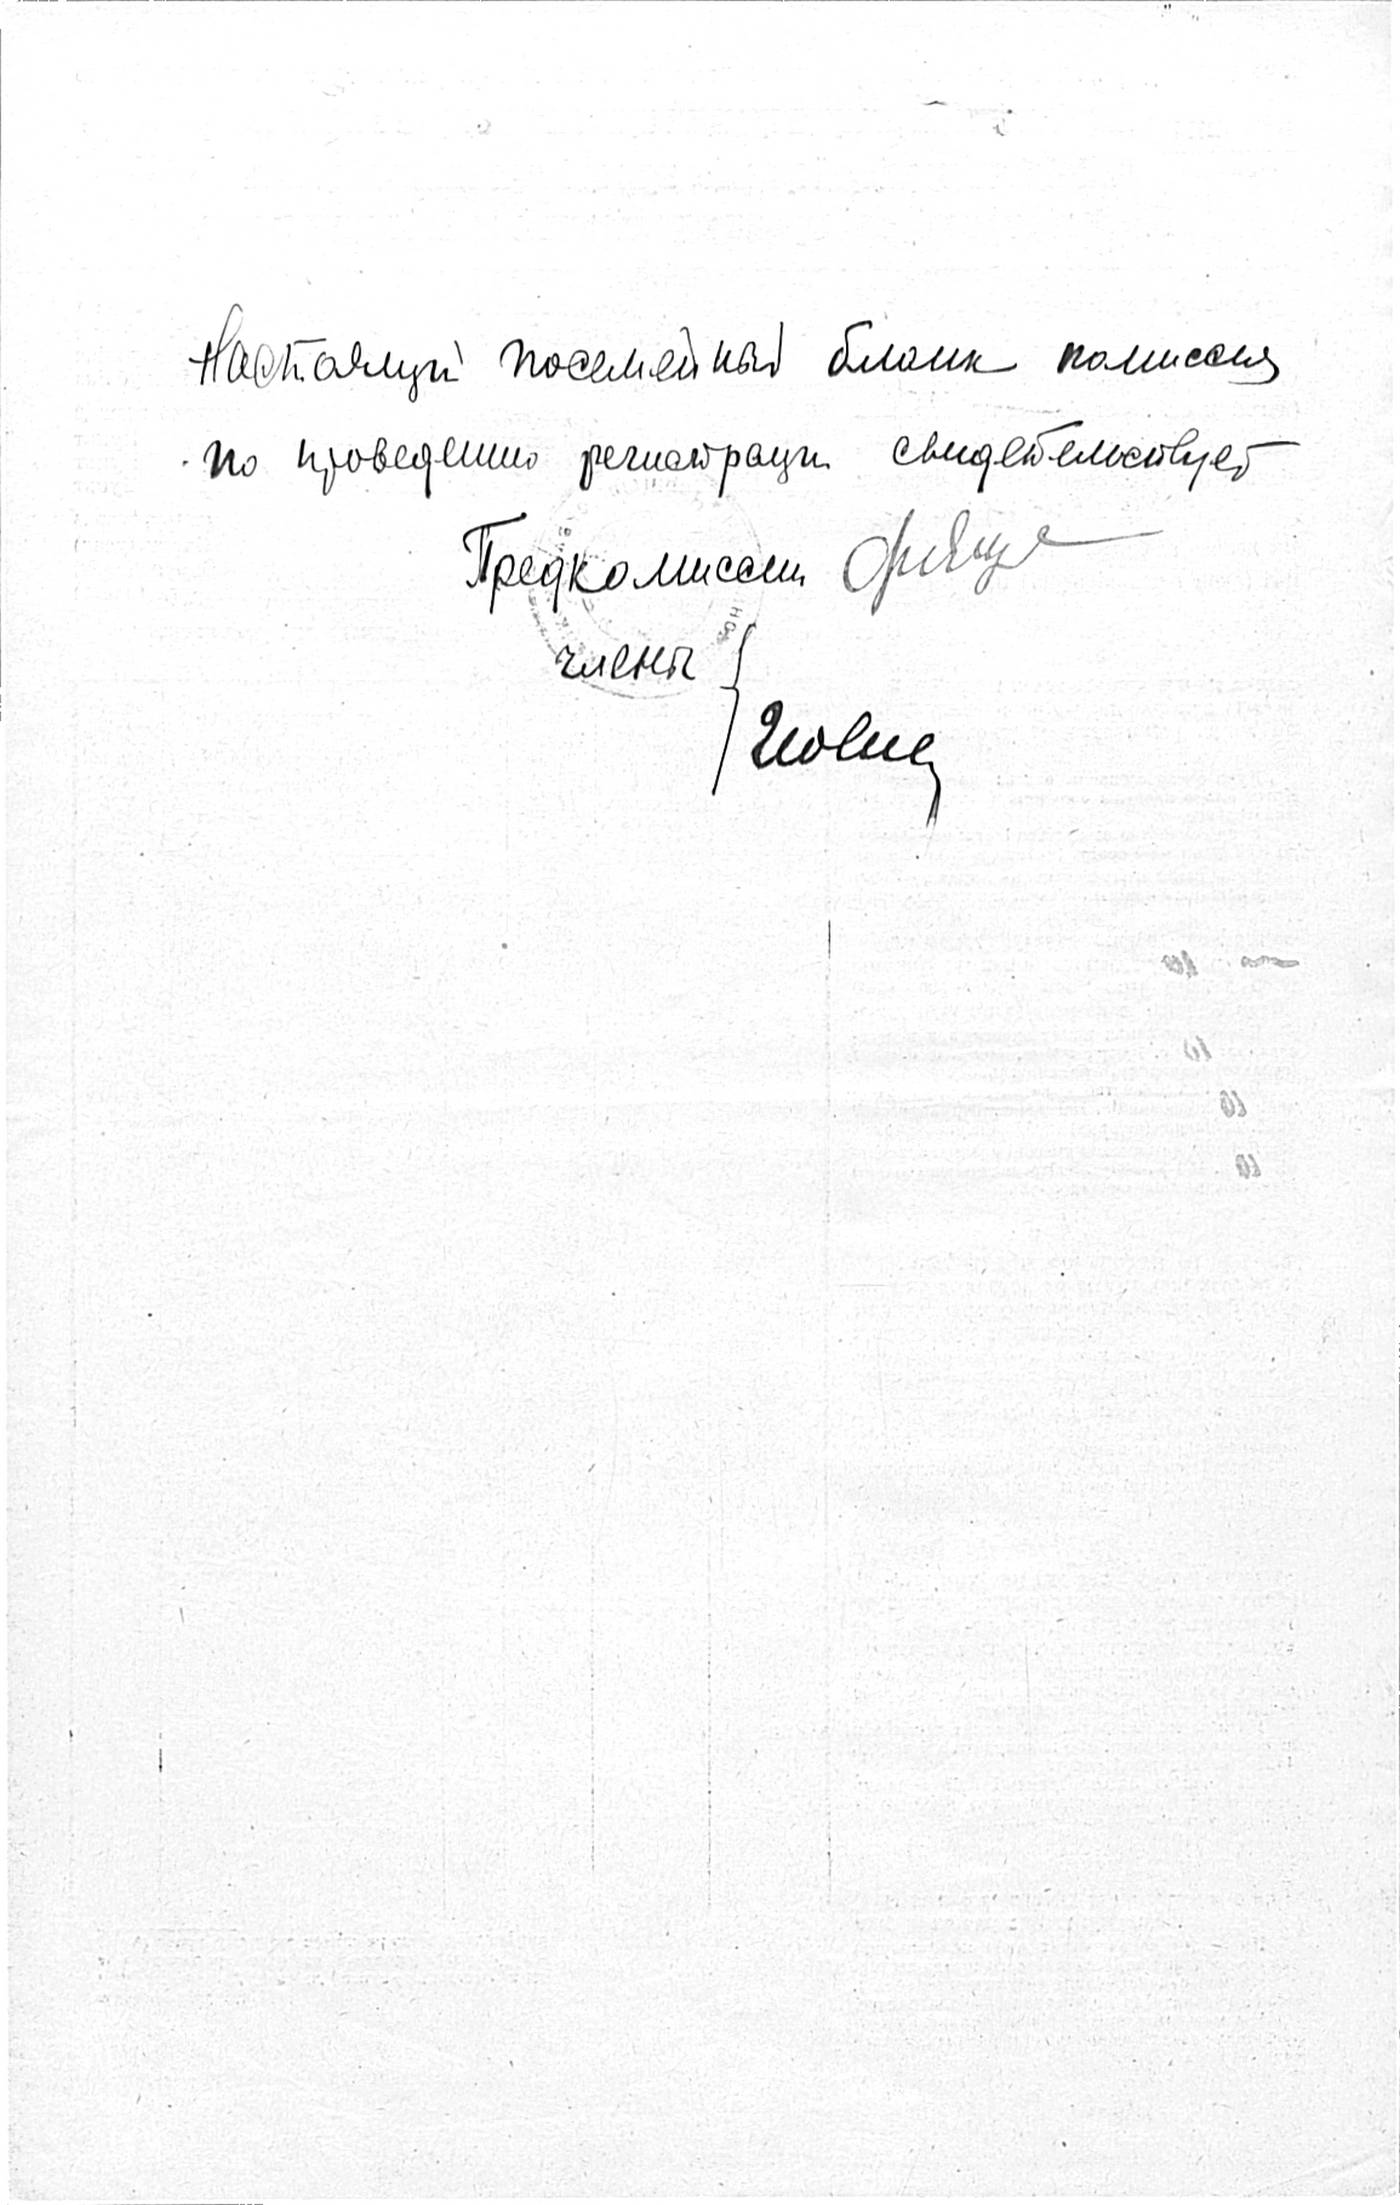 Настоящий посемейный бланк комиссия
по проведению регистраци свидетельствует
Предкомиссии
члены